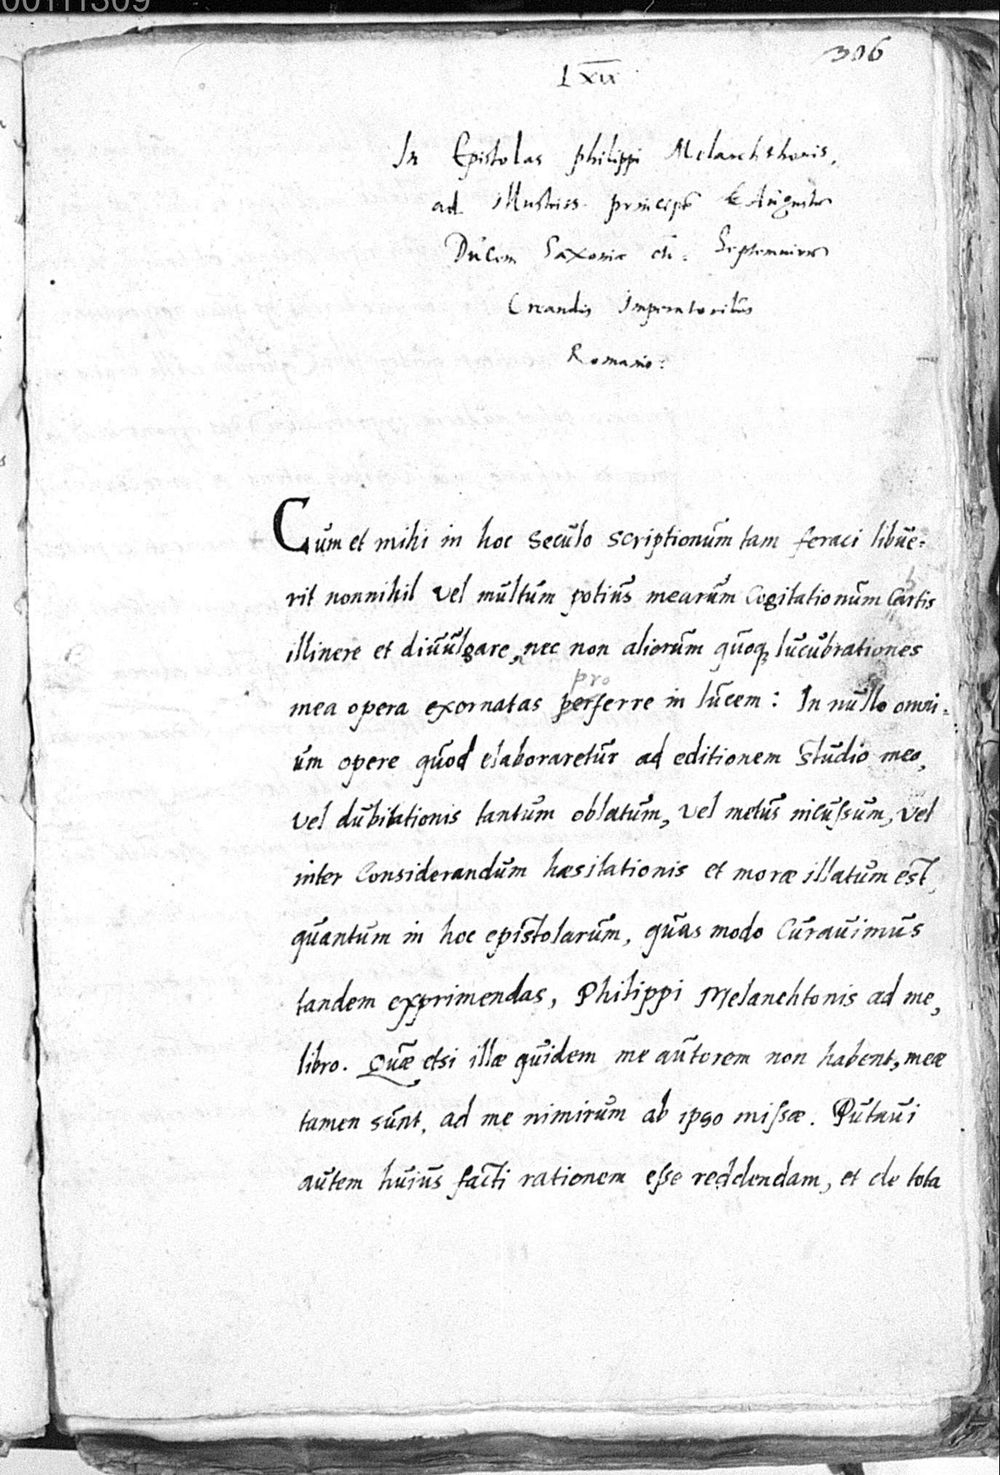 00111309
306
Lxix
In Epistolas philippi Melanchthonis,
ad Illustriss. principem Augustum
Ducem Saxoniæ etc. Septemvirum
Creandis Imperatoribus
Romanis.
Cum et mihi in hoc seculo scriptionum tam feraci libue=
rit nonnihil vel multum potius mearum cogitationum cartis
h
illinere et diuulgare, nec non aliorum quoq; lucubrationes
pro
mea opera exornatas perferre in lucem: In nullo omni=
um opere quod elaboraretur ad editionem studio meo,
vel dubitationis tantum oblatum, vel metus incussum, vel
inter considerandum hæsitationis et moræ illatum est,
quantum in hoc epistolarum, quas modo curauimus
tandem exprimendas, Philippi Melanchtonis ad me,
libro. Quæ etsi illæ quidem me autorem non habent, meæ
tamen sunt, ad me nimirum ab ipso missæ. Putaui
autem huius facti rationem esse reddendam, et de tota